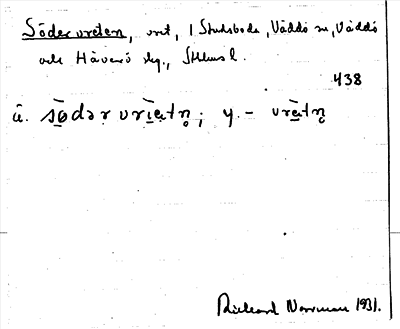 Södervreten, vret, 1 Studsboda, Väddö sn, Väddö
och Häverö slg., Sthlms l.
438
ä. södər vrīetn̥; y. - vrǟtn̥
Rickard Norrman 1931.